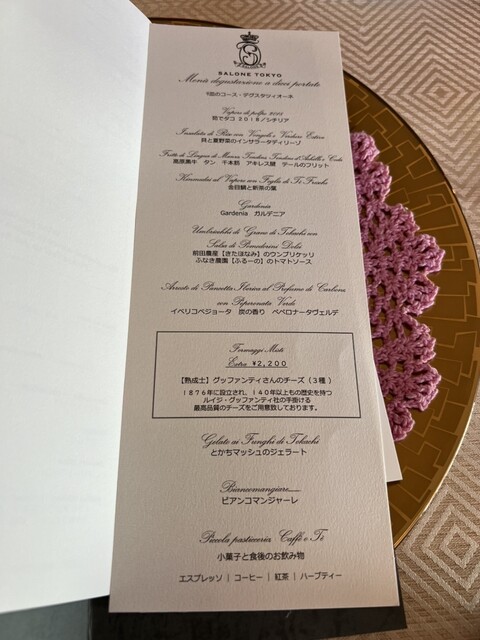 SALONE TOKYO
Menù degustazione a dieci portate
9皿のコース・デグスタツィオーネ
Vapore di polpo 2018
茹でタコ 2018/シチリア
Insalata di Riso con Vongole e Verdure Estive
貝と夏野菜のインサラータディリーゾ
Fritto di Lingua di Manzo, Tendine, Tendine d'Achille e Coda
高原黒牛 タン 千本筋 アキレス腱 テールのフリット
Kinmedai al Vapore con Foglie di Tè Fresche
金目鯛と新茶の葉
Gardenia
Gardenia ガルデニア
Umbricchelli di Grano di Tokachi con
Salsa di Pomodorini Dolci
前田農産【きたほなみ】のウンブリケッリ
ふなき農園【ふるーの】のトマトソース
Arrosto di Pancetta Iberica al Profumo di Carbone
con Peperonata Verde
イベリコベジョータ 炭の香り ペペロナータヴェルデ
Formaggi Misti
Extra ¥2,200
【熟成士】グッファンティさんのチーズ（3種）
1876年に設立され、140年以上もの歴史を持つ
ルイジ・グッファンティ社の手掛ける
最高品質のチーズをご用意致しております。
Gelato ai Funghi di Tokachi
とかちマッシュのジェラート
Biancomangiare
ビアンコマンジャーレ
Piccola pasticceria Caffè o Tè
小菓子と食後のお飲み物
エスプレッソ | コーヒー | 紅茶 | ハーブティー